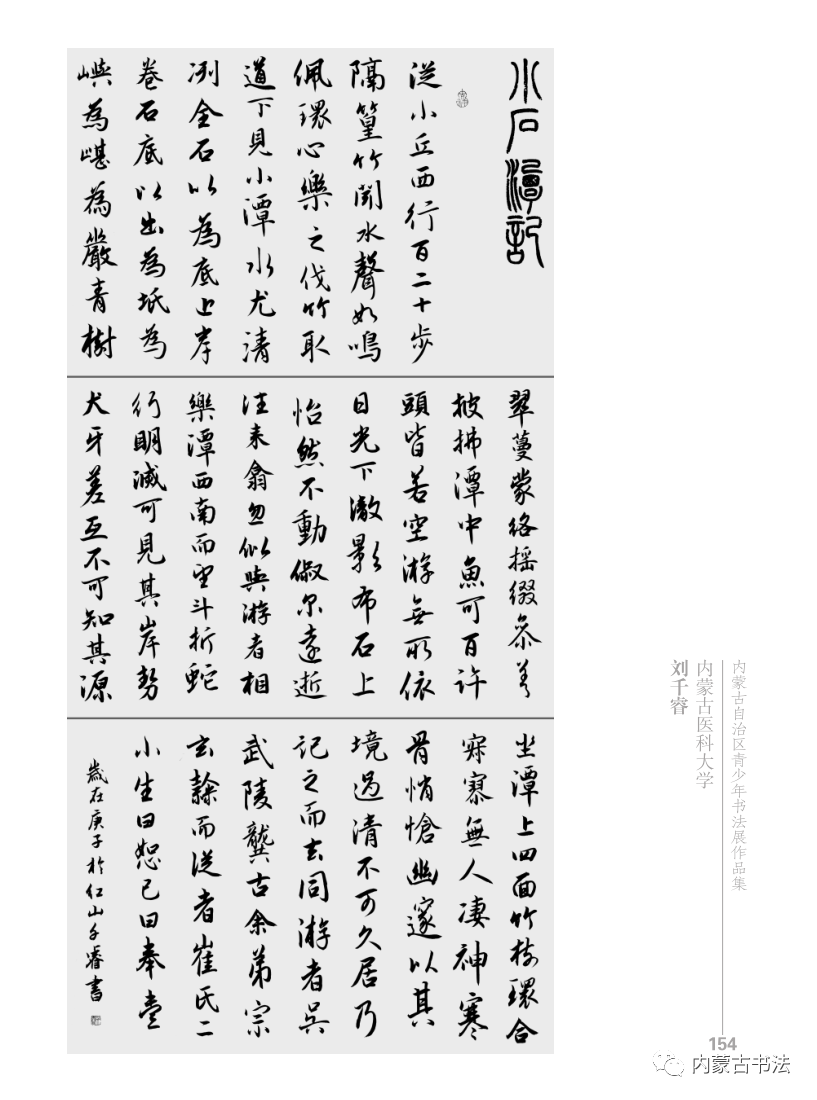 小石潭記
從小丘西行百二十步
隔篁竹聞水聲如鳴
佩環心樂之伐竹取
道下見小潭水尤清
冽全石以為底近岸
卷石底以出為坻為
嶼為嵁為巖青樹
翠蔓蒙絡摇綴參差
披拂潭中魚可百許
頭皆若空游無所依
日光下澈影布石上
怡然不動俶尔遠逝
往来翕忽似與游者相
樂潭西南而望斗折蛇
行明滅可見其岸勢
犬牙差互不可知其源
坐潭上四面竹樹環合
寂寥無人凄神寒
骨悄愴幽邃以其
境過清不可久居乃
記之而去同游者吴
武陵龔古余弟宗
玄隸而從者崔氏二
小生曰恕己曰奉壹
歲在庚子於仁山千睿書
内蒙古自治区青少年书法展作品集
内蒙古医科大学
刘千睿
154
内蒙古书法